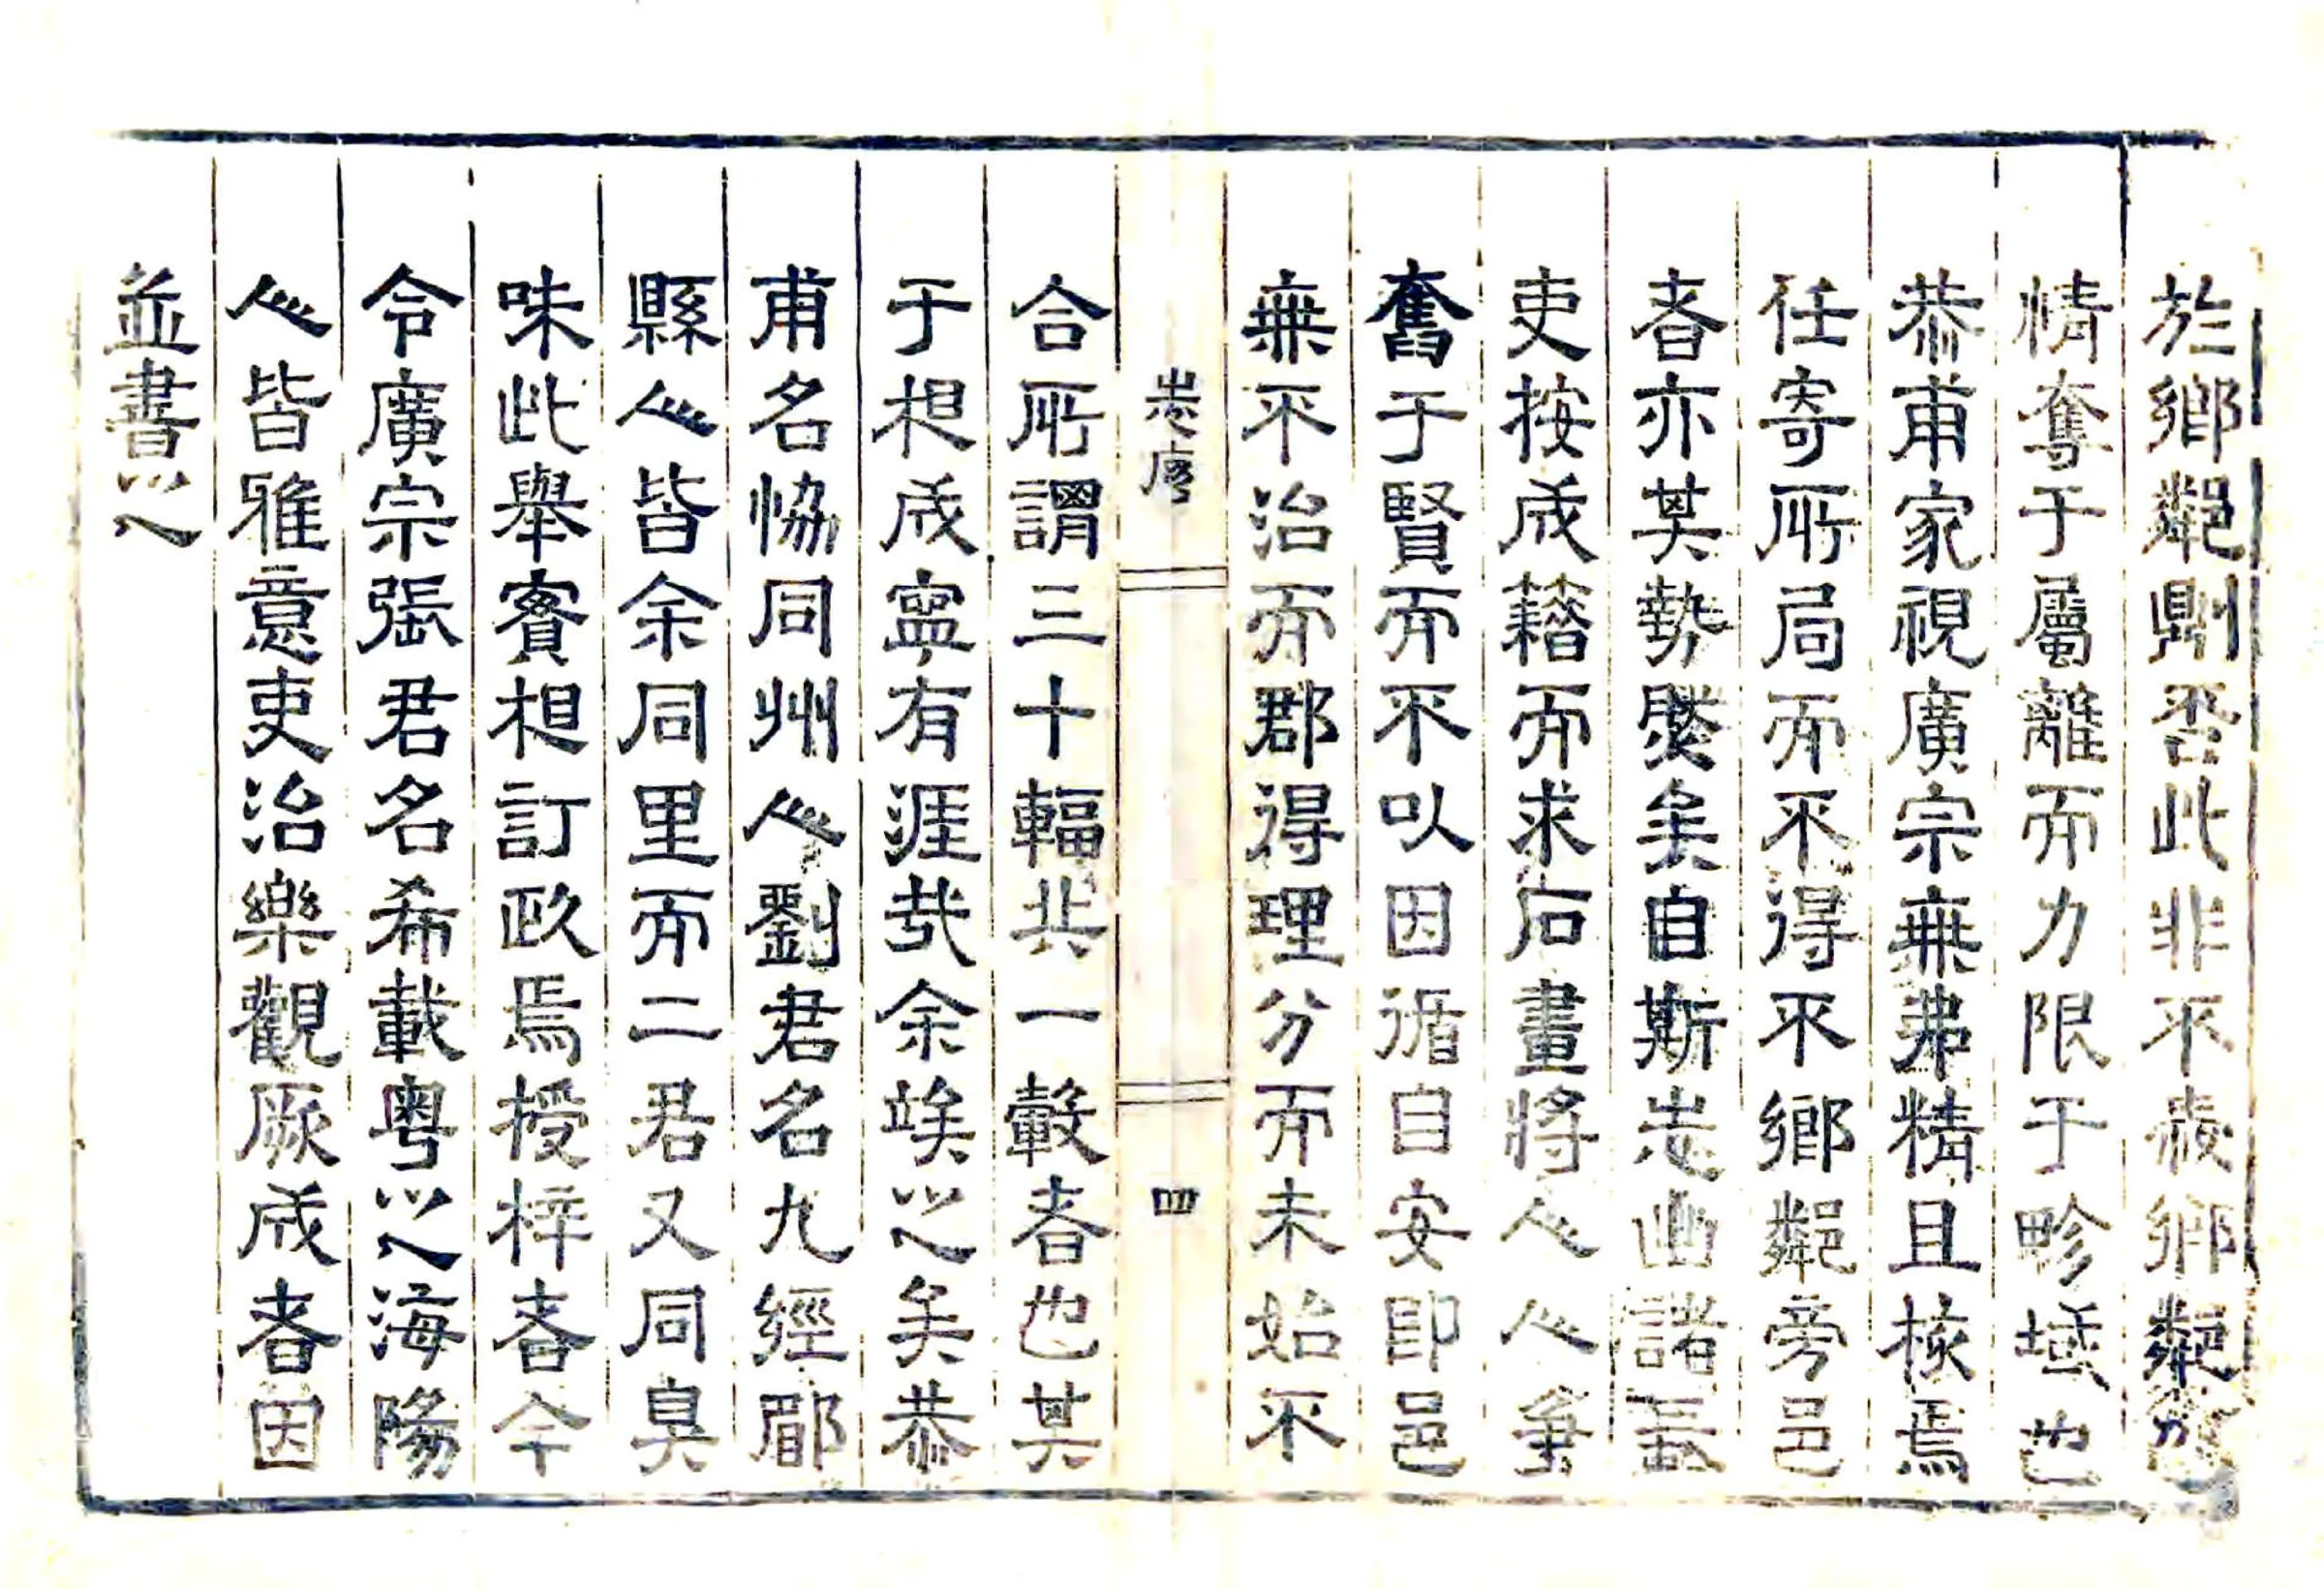 於鄉鄰則否此非不愛鄉鄰
情奪于屬離而力限于畛域也
恭甫家視廣宗無弗精且核焉
任寄所局而不得不鄉鄰旁邑
者亦其勢然矣自斯志出諸長
吏按成籍而求石畫將人人爭
奮于賢而不以因循自安即邑
無不治而郡得理分而未始不
志序 四
合所謂三十輻共一轂者也其
于相成寧有涯哉余竢之矣恭
甫名恊同州人劉君名九經郿
縣人皆余同里而二君又同臭
味此舉實相訂政焉授梓者今
令廣宗張君名希載粤之海陽
人皆雅意吏治樂觀厥成者因
並書之